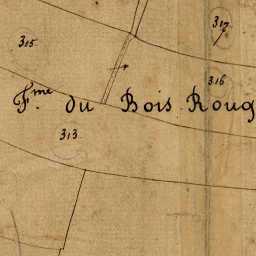 317
315
316
F.me du Bois Roug
313